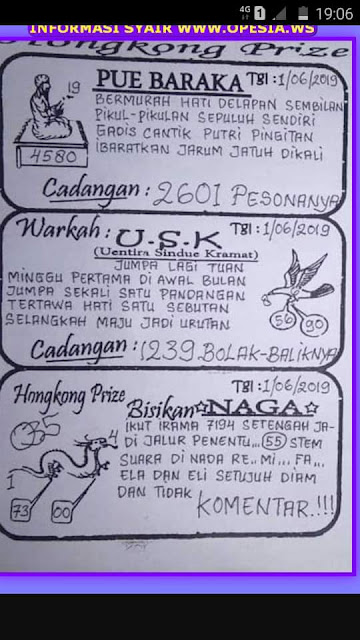 4G 1 19:06
INFORMASI SYAIR WWW.OPESIA.WS
Hongkong Prize
PUE BARAKA Tgl : 1/06/2019
19
BERMURAH HATI DELAPAN SEMBILAN
PIKUL-PIKULAN SEPULUH SENDIRI
GADIS CANTIK PUTRI PINGITAN
IBARATKAN JARUM JATUH DIKALI
4580
Cadangan : 2601 PESONANYA
Warkah : U-S-K Tgl : 1/06/2019
(Uentira Sindue Kramat)
JUMPA LAGI TUAN
MINGGU PERTAMA DI AWAL BULAN
JUMPA SEKALI SATU PANDANGAN
TERTAWA HATI SATU SEBUTAN
SELANGKAH MAJU JADI URUTAN
56 90
Cadangan : 1239.BOLAK-BALIKNYA
Tgl : 1/06/2019
Hongkong Prize Bisikan NAGA
IKUT IRAMA 7194 SETENGAH JA-
DI JALUR PENENTU,,, 55 STEM
SUARA DI NADA RE.. MI,,, FA,,,
ELA DAN ELI SETUJUH DIAM
DAN TIDAK KOMENTAR.!!!
4
1
73 00